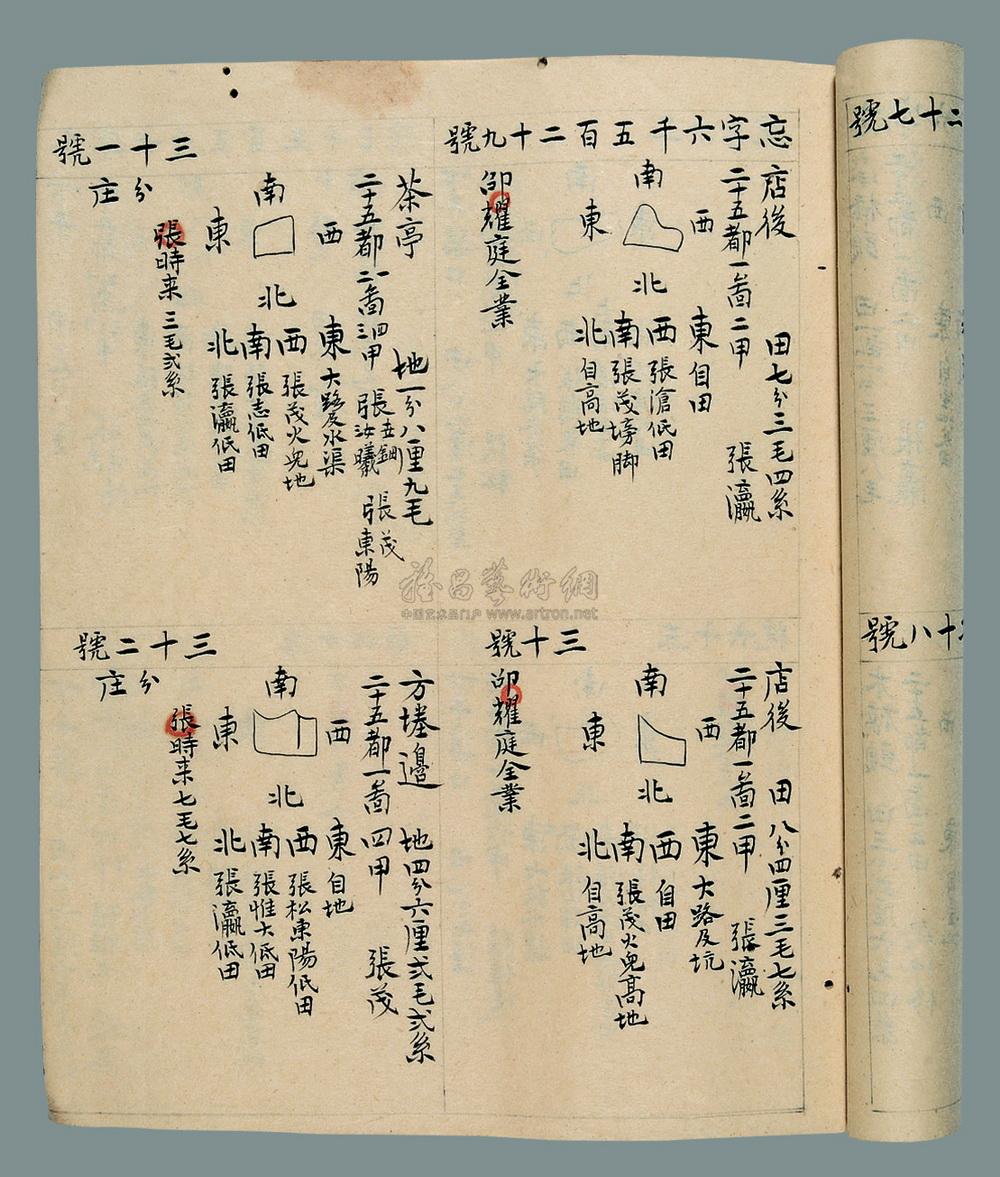 忘字六千五百二十九號
店後 田七分三毛四糸
二十五都一啚二甲 張瀛
南
西
東
北
東 自田
西 張滄低田
南 張茂塝脚
北 自高地
邵耀庭全業
三十號
店後 田 八分四厘三毛七糸
二十五都一啚二甲 張瀛
南
西
東
北
東 大路及坑
西 自田
南 張茂火兒高地
北 自高地
邵耀庭全業
三十一號
茶亭 地一分八厘九毛
二十五都 啚 甲 張 張汝曦 張茂 張東陽
南
西
東
北
東 大路及水渠
西 張茂火兒地
南 張志低田
北 張瀛低田
分庄
張時来 三毛弍糸
三十二號
方塘邉 地四分六厘弍毛弍糸
二十五都一啚四甲 張茂
南
西
東
北
東 自地
西 張松東陽低田
南 張惟大低田
北 張瀛低田
分庄
張時来 七毛七糸
二十七號
十八號
雅昌藝術網
中国艺术品门户 www.artron.net